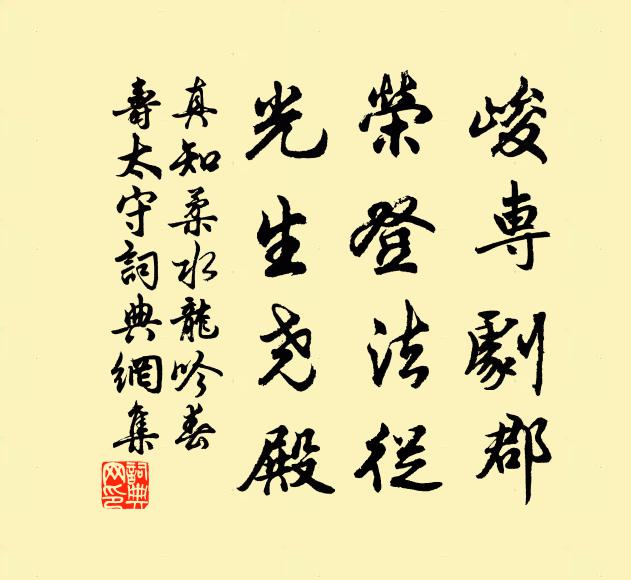 峻専劇郡
榮登法從
光生尧殿
真知柔水龍吟春
壽太守詞典網集
詞典網印